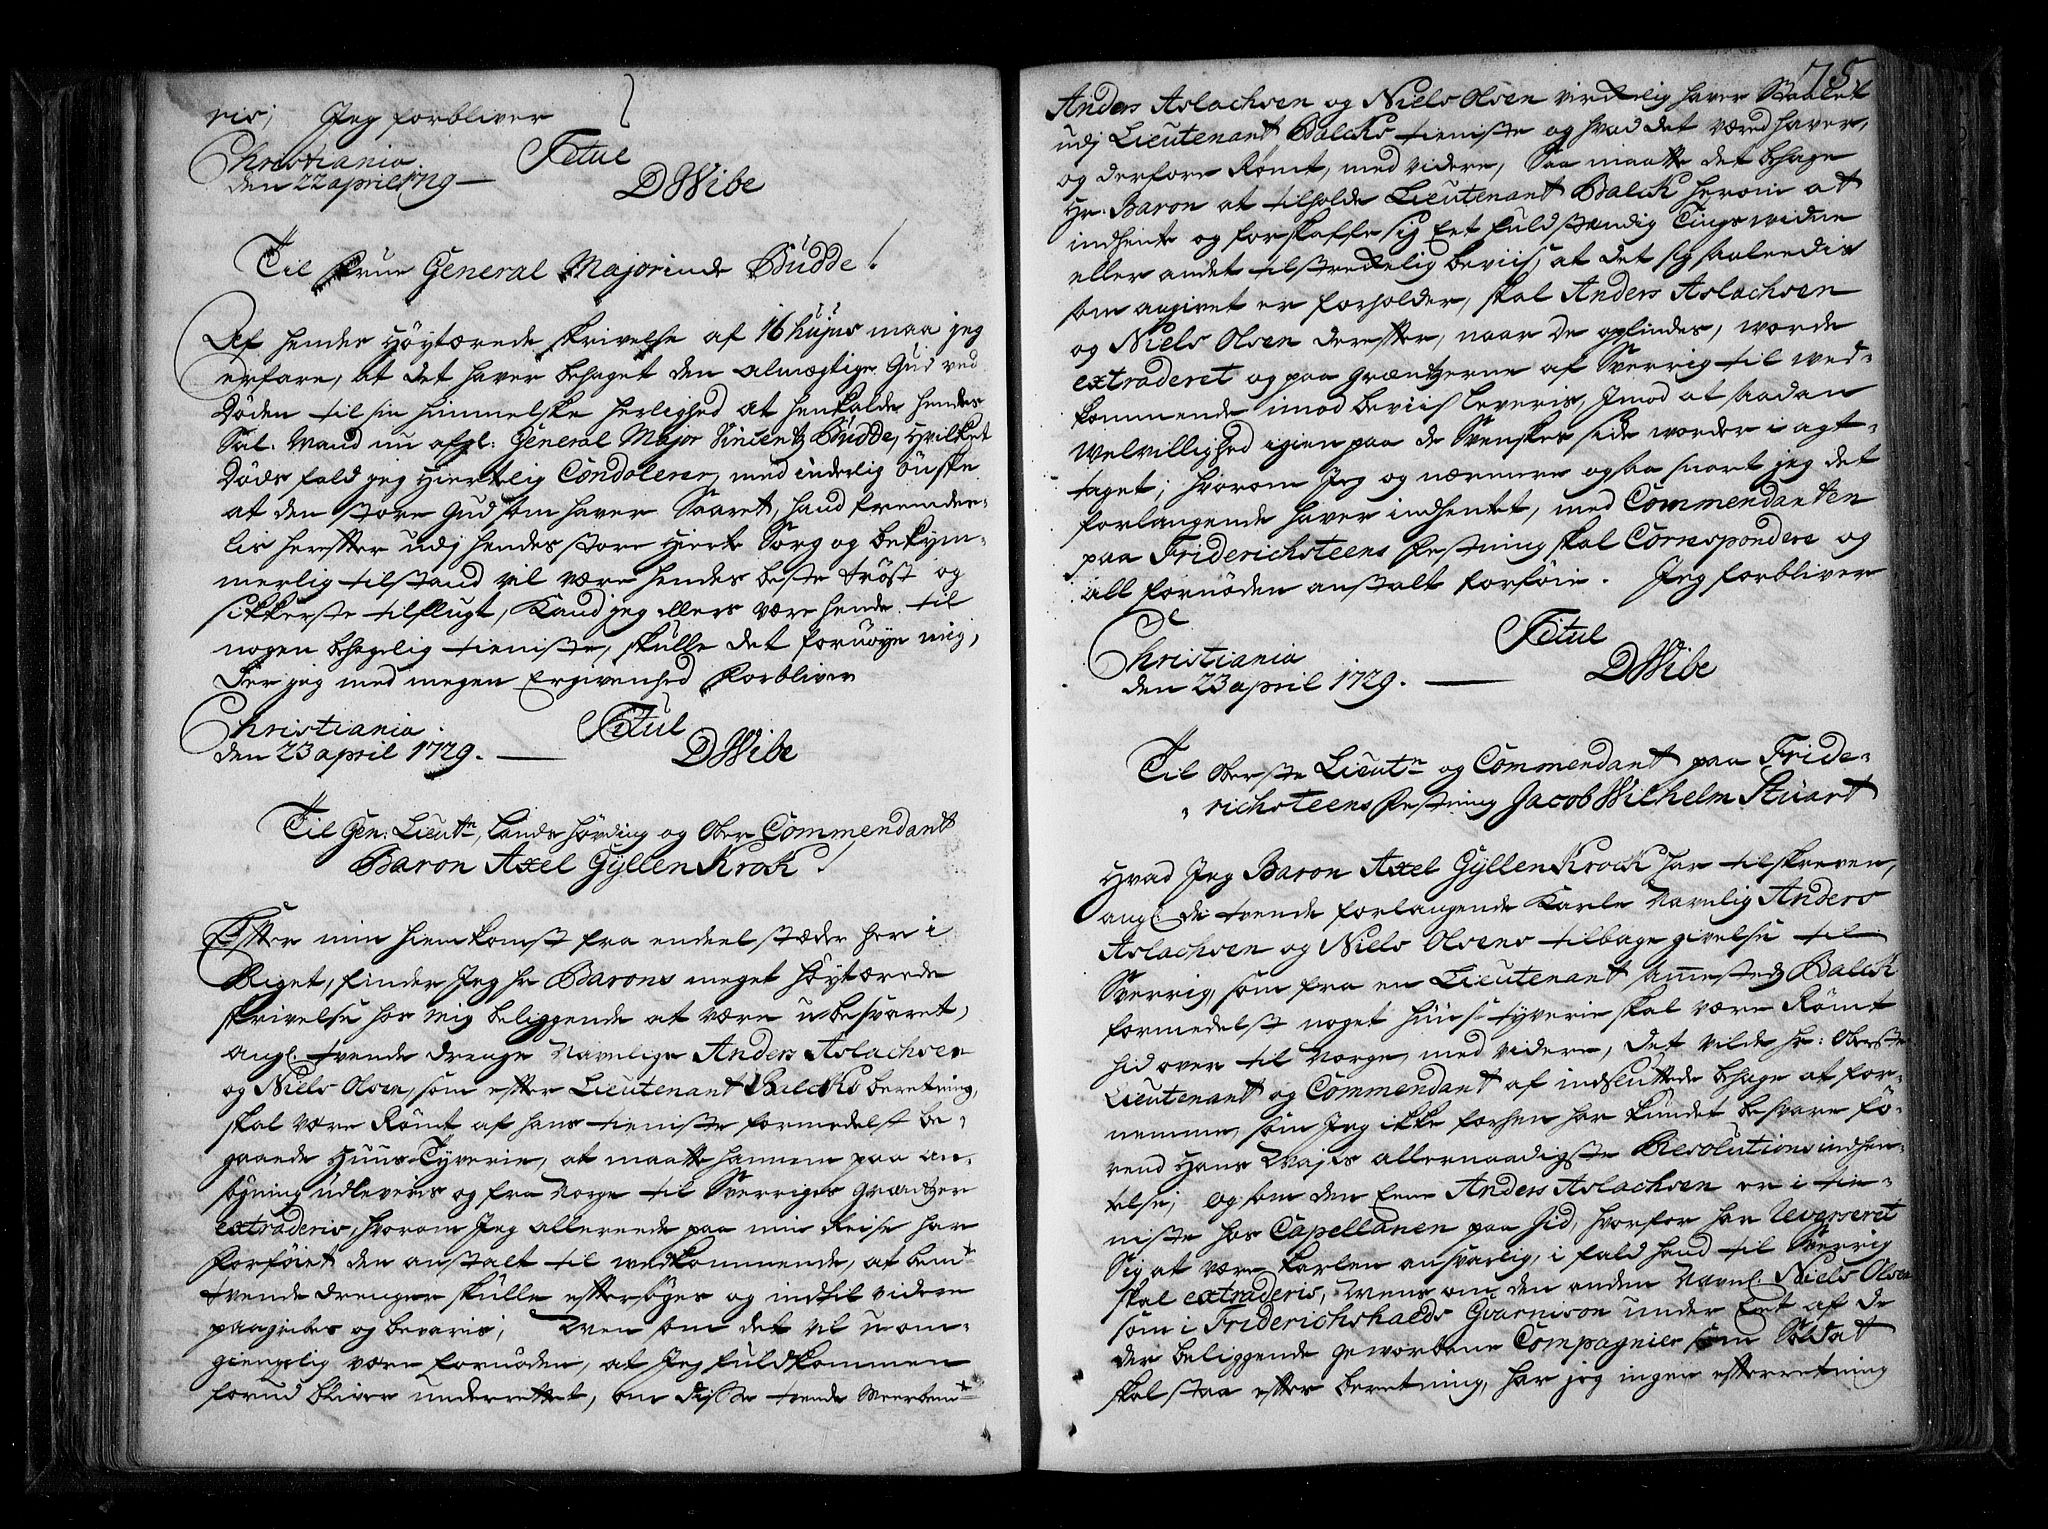 ris; Jeg forbliver
Christiania Titul
den 22 april 1729 — DWibe
Til Frue General Majorinde Budde!
Af hendes Höytærede skrivelse af 16 hujus maa jeg
erfare, at det haver behaget den almægtige Gud ved
Döden til sin himmelske herlighed at henkalde hendes
Sal. Mand nu afgl: General Major Vincentz Budde, hvilket
Döds fald jeg Hiertelig Condolerer, med inderlig önske
at den store Gud som haver Saaret, hand fremde-
lis herefter udj hendes store Hierte Sorg og bekym-
merlig tilstand vil være hendes beste tröst og
sikkerste tilflugt, Kand jeg ellers være hende til
nogen behagelig tieniste, skulle det fornöye mig,
Der jeg med megen Ergivenhed forbliver
Christiania Titul
den 23 april 1729. — DWibe
Til Gen: Lieutn, Landshövding og Ober Commendant
Baron Axel GyllenKrok!
Efter min hiemkomst fra endeel stæder her i
Riget, finder Jeg hr Barons meget höytærede
skrivelse hos mig beliggende at være ubesvaret,
angl. tvende drenge Navnlige Anders Aslachsen
og Niels Olsen, som efter Lieutenant Balcks beretning,
skal være Römt af hans tieniste formedelst be-
gaaede Huus-Tyverie, at maatte hannem paa an-
sögning udleveris og fra Norge til Sverriges Grændtzer
extraderis, hvorom Jeg allereede paa min Reise har
forföiet den anstalt til vedkommende, at bemte
tvende drenger skulle eftersöges og indtil videre
paagribes og bevaris; Men som det vil uom-
giengelig være fornöden, at Jeg fuldkommen
forud bliver underrettet, om disse tvende Meerbemte
75.
Anders Aslachsen og Niels Olsen virkelig haver Staalet
udj Lieutenant Balcks tieniste og hvad det værd haver,
og derfore Römt, med videre, Saa maatte det behage
Hr. Baron at tilholde Lieutenant Balck herom at
indhente og forskaffe sig Eet fuldstændig Tingswidne
eller andet tilstrekkelig beviis, at det sig saaleedis
som angivet er forholder, skal Anders Aslachsen
og Niels Olsen derefter, naar De opfindes, worde
extraderet og paa Grændtzerne af Sverrig til ved-
kommende imod beviis leveris, Imod at saadan
Welvillighed igien paa de Svenskes side worder i agt-
taget; hvorom Jeg og nærmere ogsaa snart jeg det
forlangende haver indhentet, med Commendanten
paa Friderichsteens Festning skal Correspondere og
all fornöden anstalt forföie. Jeg forbliver
Christiania Titul
den 23 april 1729. — DWibe
Til Oberste Lieutn og Commendant paa Fride-
richsteens Festning Jacob Wilhelm Stuart
Hvad Jeg Baron Axel GyllenKrock har tilskreven,
angl: de tvende forlangende Karle Navnlig Anders
Aslachsen og Niels Olsens tilbage givelse til
Sverrig, som fra en Lieutenant sammesteds Balck
formedelst noget huus-tyverie skal være Römt
hid over til Norge, med videre, Det vilde hr: Oberste
Lieutenant og Commendant af indsluttede behage at for-
nemme, som Jeg ikke forhen har kundet besvare fö-
rend Hans Majts allernaadigste Resolutions indhen-
telse; og som den Eene Anders Aslachsen er i tie-
niste hos Capellanen paa Jid, hvorfor han Reverseret
Sig at være karlen ansvarlig, i fald hand til Sverrig
skal extraderis, Mens om den anden Navnl. Niels Olsen
som i Friderichshalds Guarnison under Eet af de
der beliggende geworbene Compagnier som Soldat
skal staa efter beretning, har jeg ingen efterretning